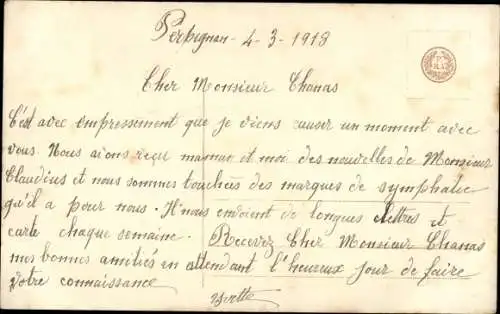 Perpignan - 4-3-1918
Cher Monsieur Chanas
C'est avec empressement que je viens causer un moment avec
vous. Nous avons reçu maman et moi des nouvelles de Monsieur
Claudius et nous sommes touchées des marques de symphatie
qu'il a pour nous. Il nous envoient de longues lettres et
carte chaque semaine. Recevez Cher Monsieur Chanas
mes bonnes amitiés en attendant l'heureux jour de faire
votre connaissance
Yvette